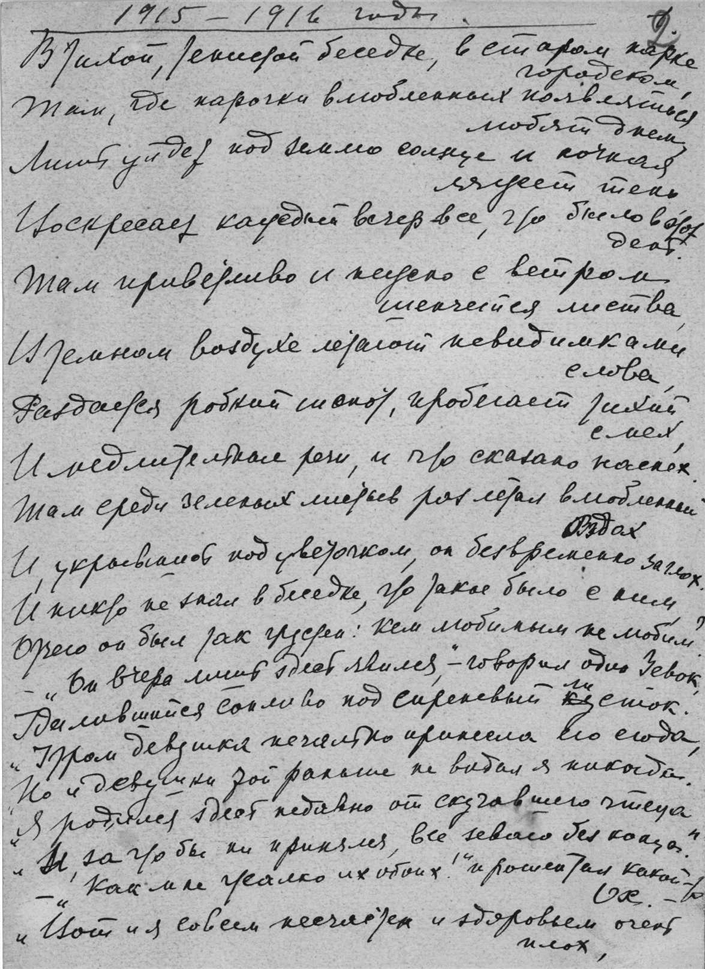 1915 – 1916 годы.
2
В тихой, тенистой беседке, в старом парке
городском,
Там, где парочки влюбленных появляться
любят днем,
Лишь уйдет под землю солнце и ночная
ляжет тень
Воскресает каждый вечер все, что было в этот
день.
Там приветливо и нежно с ветром
шепчется листва,
И в темном воздухе летают невидимками
слова,
Раздается робкий шепот, пробегает тихий
смех,
И медлительные речи, и что сказано наспех.
Там среди зеленых листьев разлетал влюбленный
Вздох
И, укрывшись под цветочком, он безвременно заглох.
И никто не знал в беседке, что такое было с ним,
Отчего он был так грустен: кем любимым не любим?
– „Он вчера лишь здесь явился", – говорил один Зевок,
Валившийся сонливо под сиреневый листок.
„Утром девушка печально принесла его сюда,
„Но и девушки той раньше не видал я никогда.
„Я родился здесь недавно от скучавшего чтеца
„И, за что бы ни принялся, все зеваю без конца."
– „Как мне жалко их обоих!" прошептал какой-то
Ох. –
„Вот и я совсем несчастен и здоровьем очень
плох,